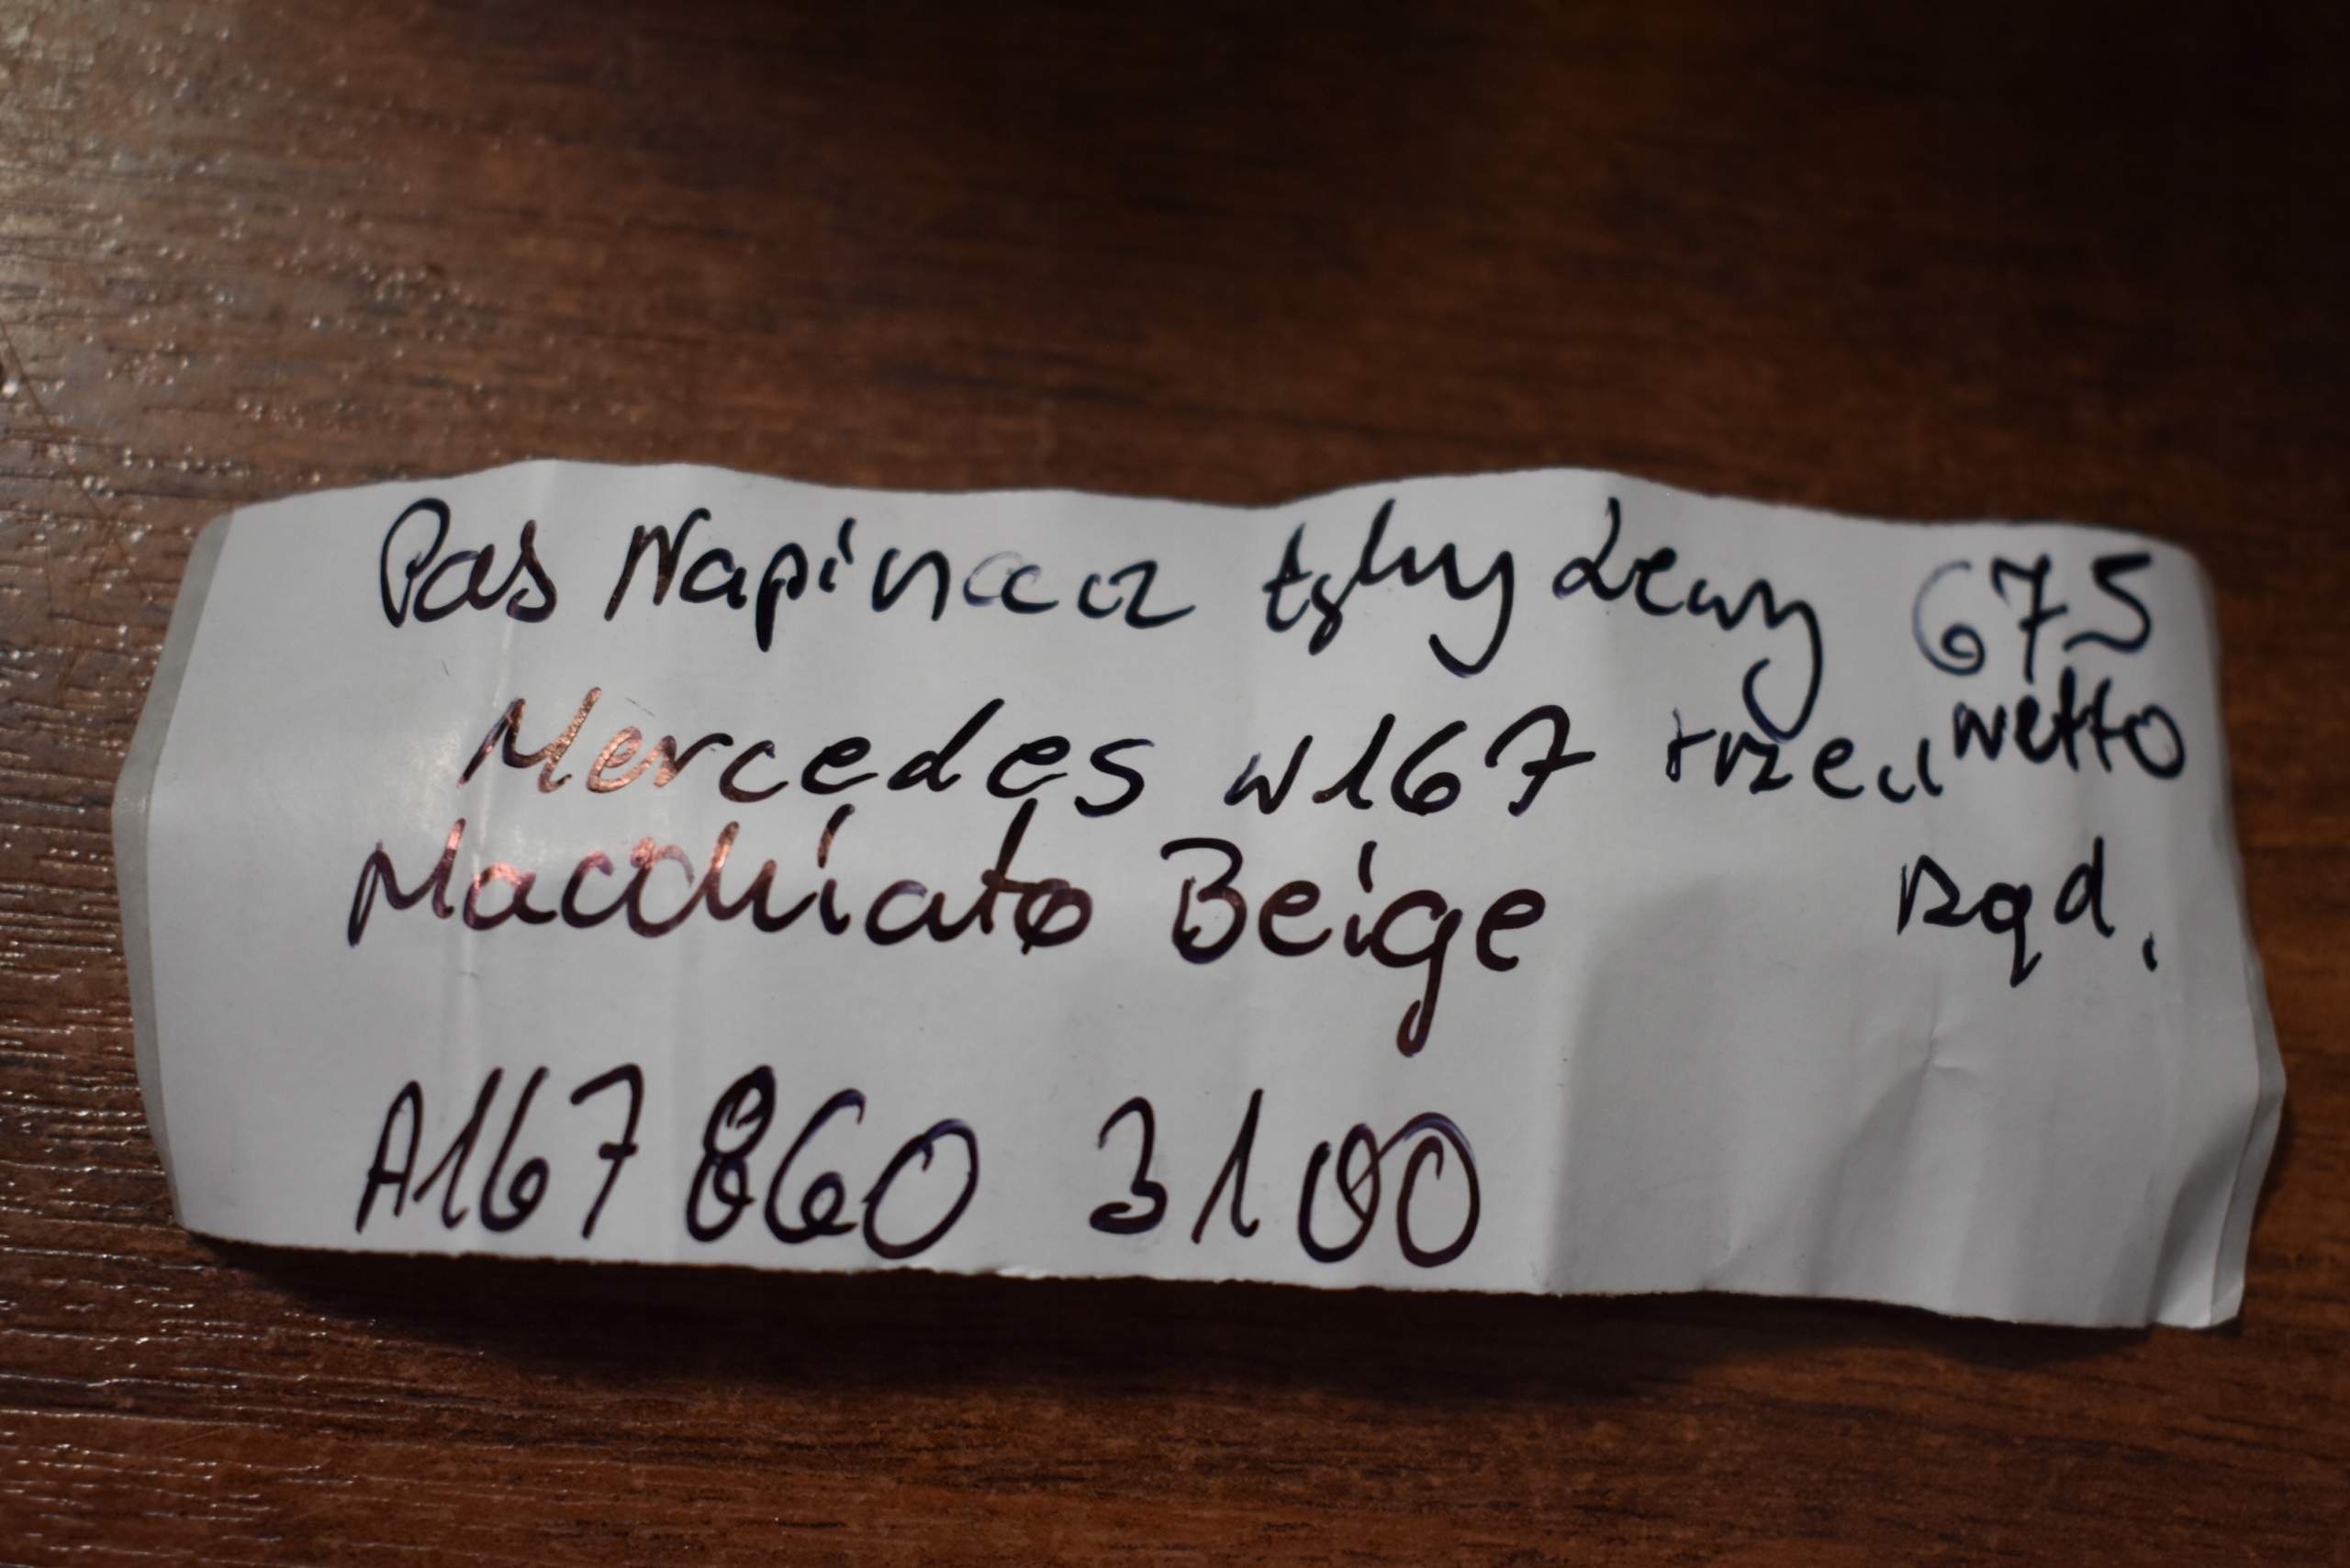 Pas Napinacz tylny Lewy 675
Mercedes W167 trzeci netto
Macchiato Beige rząd.
A167 860 3100